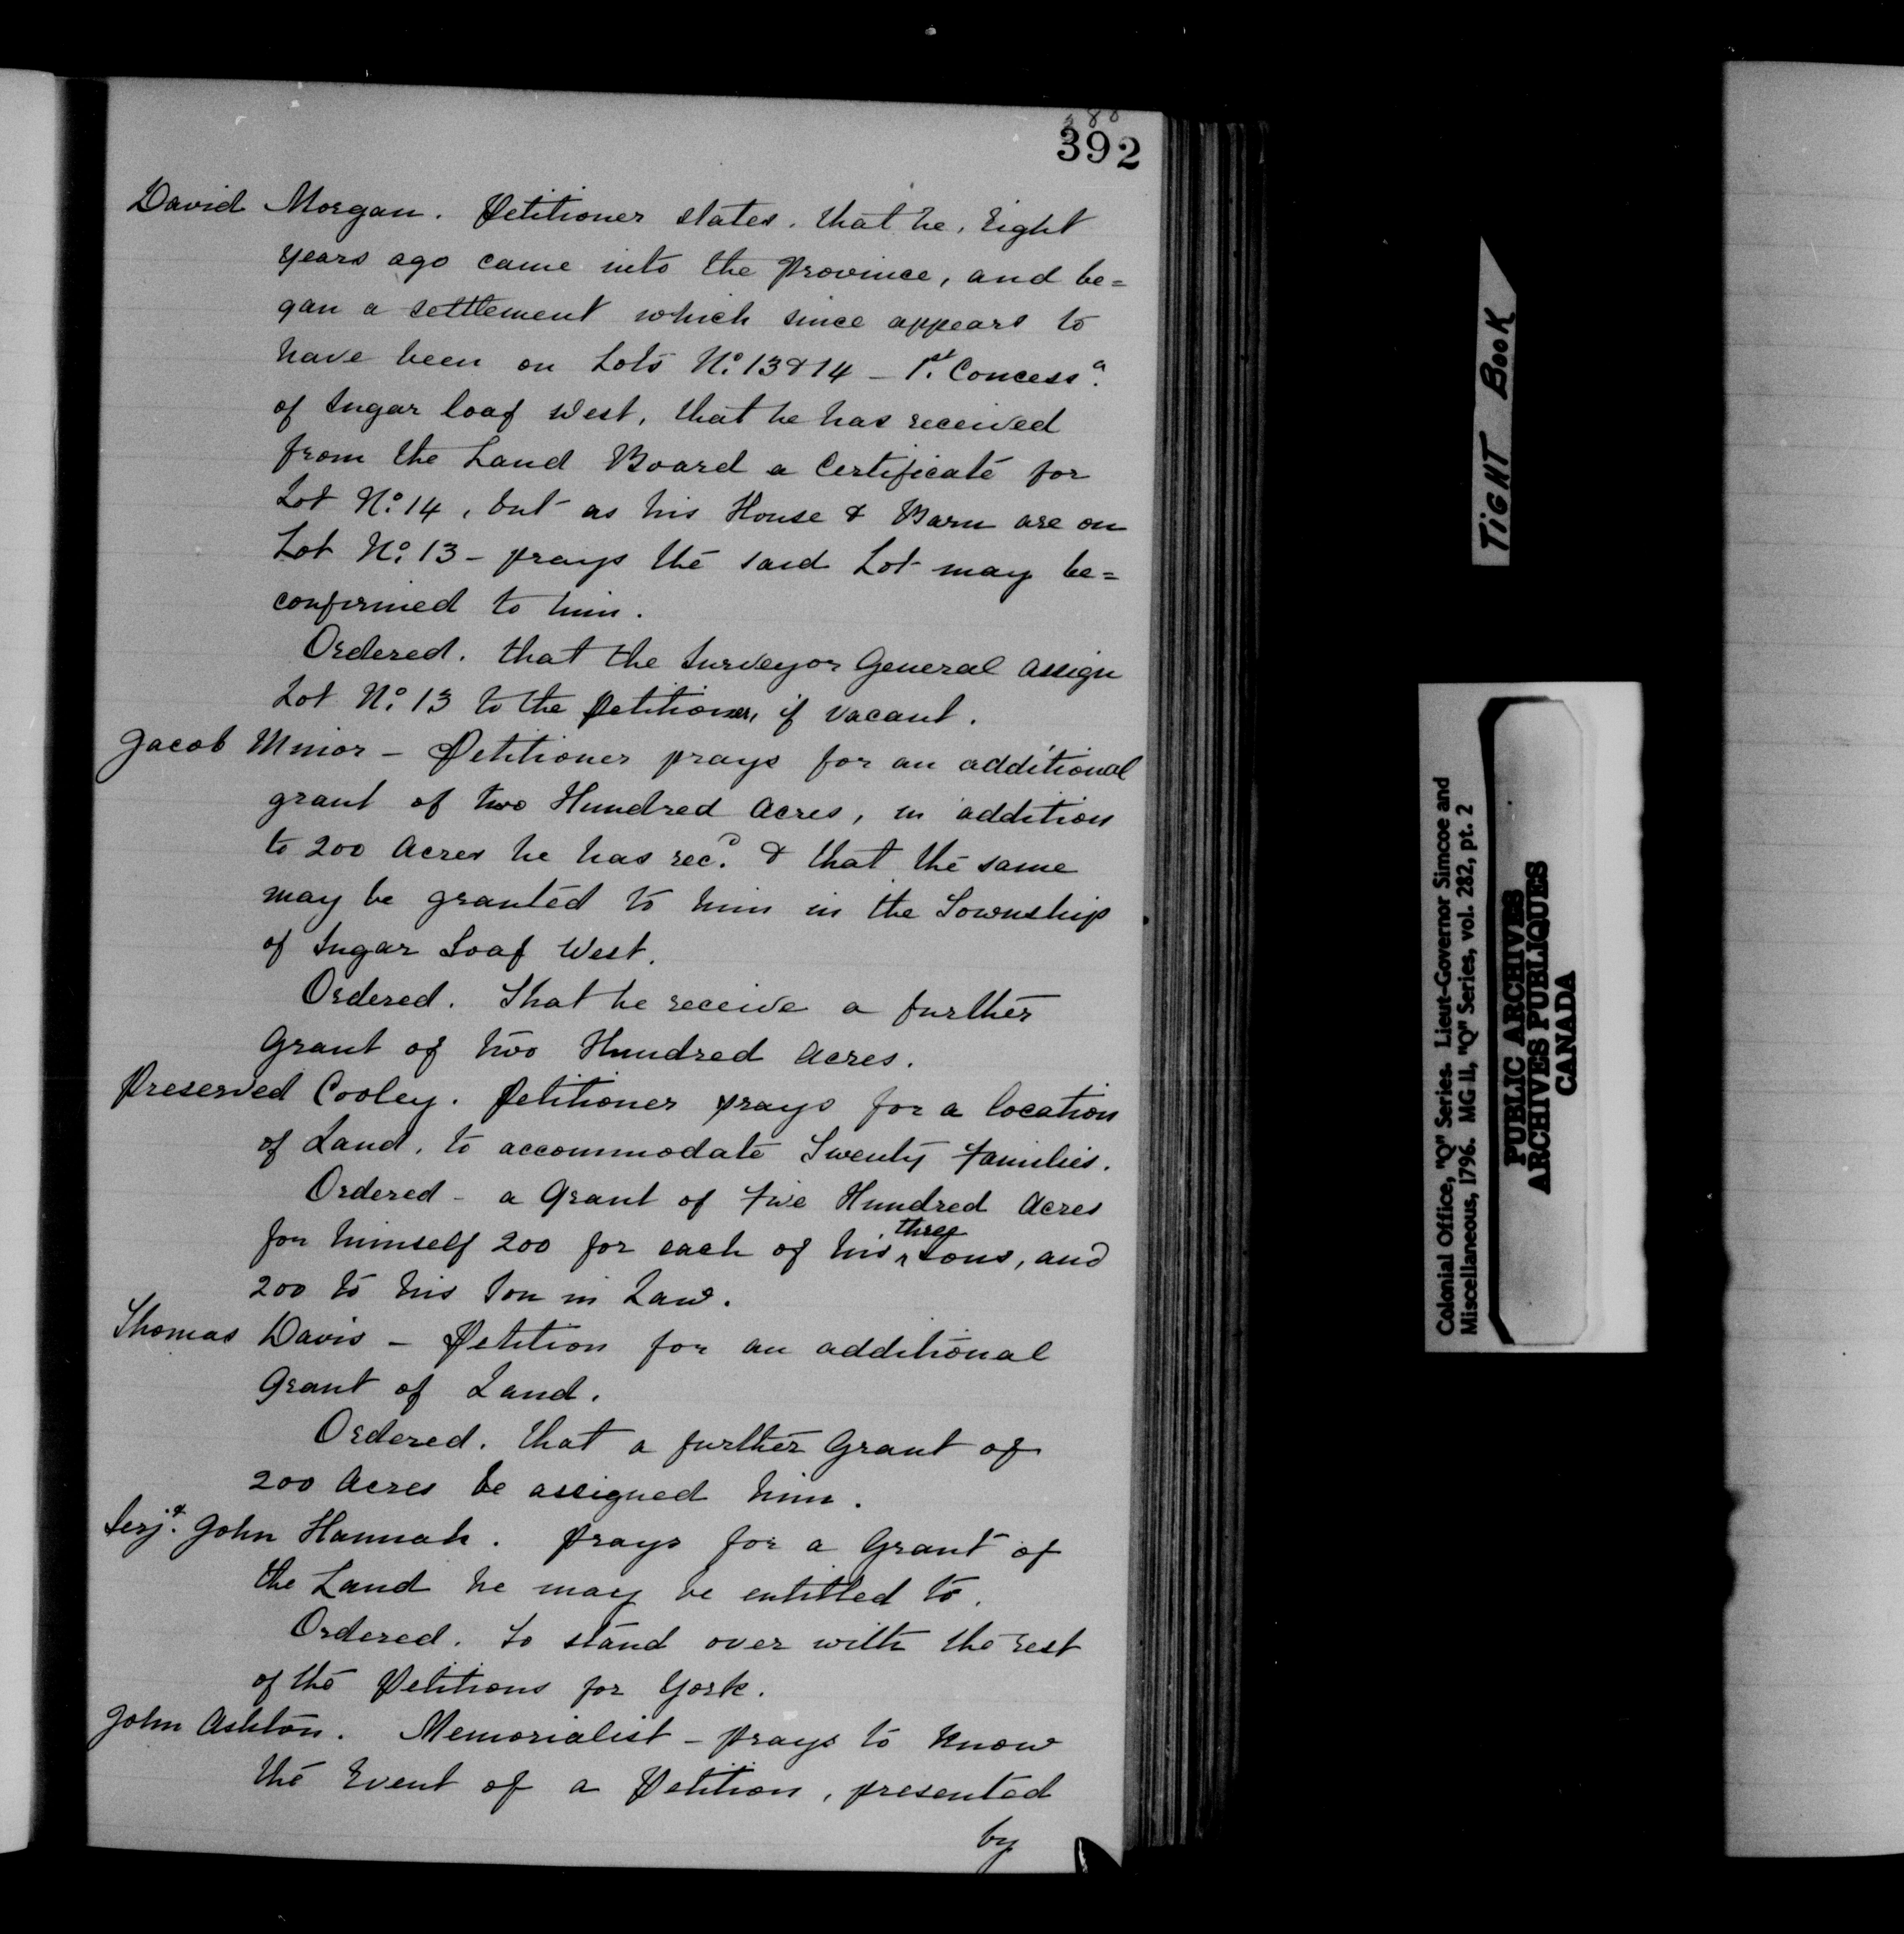 392
David Morgan. Petitioner states, that he, Eight
years ago came into the Province, and be=
gan a settlement which since appears to
have been on Lots No. 13 & 14 – 1st. Concess
of Sugar loaf West, that he has received
from the Land Board a Certificate for
Lot No. 14, but as his House & Barn are on
Lot No. 13 – prays the said Lot may be=
confirmed to him.
Ordered. that the Surveyor General assign
Lot No. 13 to the Petitioner, if vacant.
Jacob Minor – Petitioner prays for an additional
grant of two Hundred Acres, in addition
to 200 Acres he has recd. & that the same
may be granted to him in the Township
of Sugar Loaf West.
Ordered. That he receive a further
Grant of two Hundred Acres.
Preserved Cooley. Petitioner prays for a location
of Land, to accommodate Twenty Families.
Ordered – a Grant of Five Hundred Acres
for himself 200 for each of his three Sons, and
200 to his Son in Law.
Thomas Davis – Petition for an additional
Grant of Land.
Ordered. that a further Grant of
200 Acres be assigned him.
Serjt. John Hannah. prays for a Grant of
the Land he may be entitled to.
Ordered. to stand over with the rest
of the Petitions for York.
John Ashton. Memorialist – prays to know
the Event of a Petition, presented
by
TIGHT BOOK
Colonial Office, "Q" Series. Lieut-Governor Simcoe and
Miscellaneous, 1796. MG 11, "Q" Series, vol. 282, pt. 2
PUBLIC ARCHIVES
ARCHIVES PUBLIQUES
CANADA